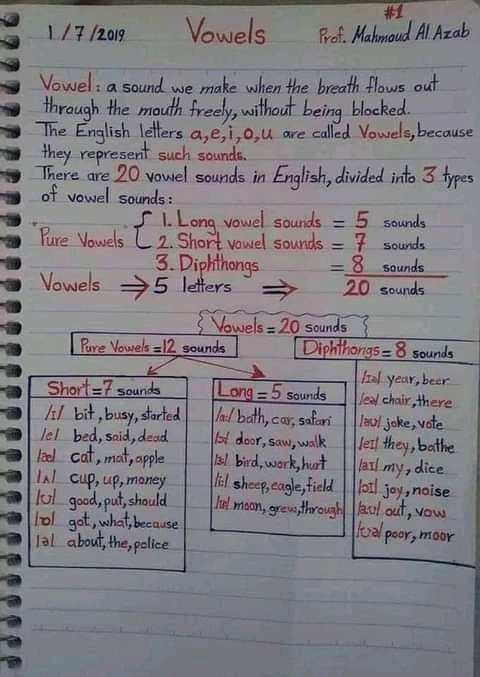 #1
1/7/2019 Vowels Prof. Mahmoud Al Azab
Vowel: a sound we make when the breath flows out
through the mouth freely, without being blocked.
The English letters a,e,i,o,u are called Vowels, because
they represent such sounds.
There are 20 vowel sounds in English, divided into 3 types
of vowel sounds:
Pure Vowels { 1. Long vowel sounds = 5 sounds
2. Short vowel sounds = 7 sounds
3. Diphthongs = 8 sounds
Vowels ⇒ 5 letters ⇒ 20 sounds
Vowels = 20 sounds
Pure Vowels = 12 sounds
Diphthongs = 8 sounds
Short = 7 sounds
/ɪ/ bit, busy, started
/e/ bed, said, dead
/æ/ cat, mat, apple
/ʌ/ cup, up, money
/ʊ/ good, put, should
/ɒ/ got, what, because
/ə/ about, the, police
Long = 5 sounds
/a:/ bath, car, safari
/ɔ:/ door, saw, walk
/ɜ:/ bird, work, hurt
/i:/ sheep, eagle, field
/u:/ moon, grew, through
/ɪə/ year, beer
/eə/ chair, there
/əʊ/ joke, vote
/eɪ/ they, bathe
/aɪ/ my, dice
/ɔɪ/ joy, noise
/aʊ/ out, vow
/ʊə/ poor, moor